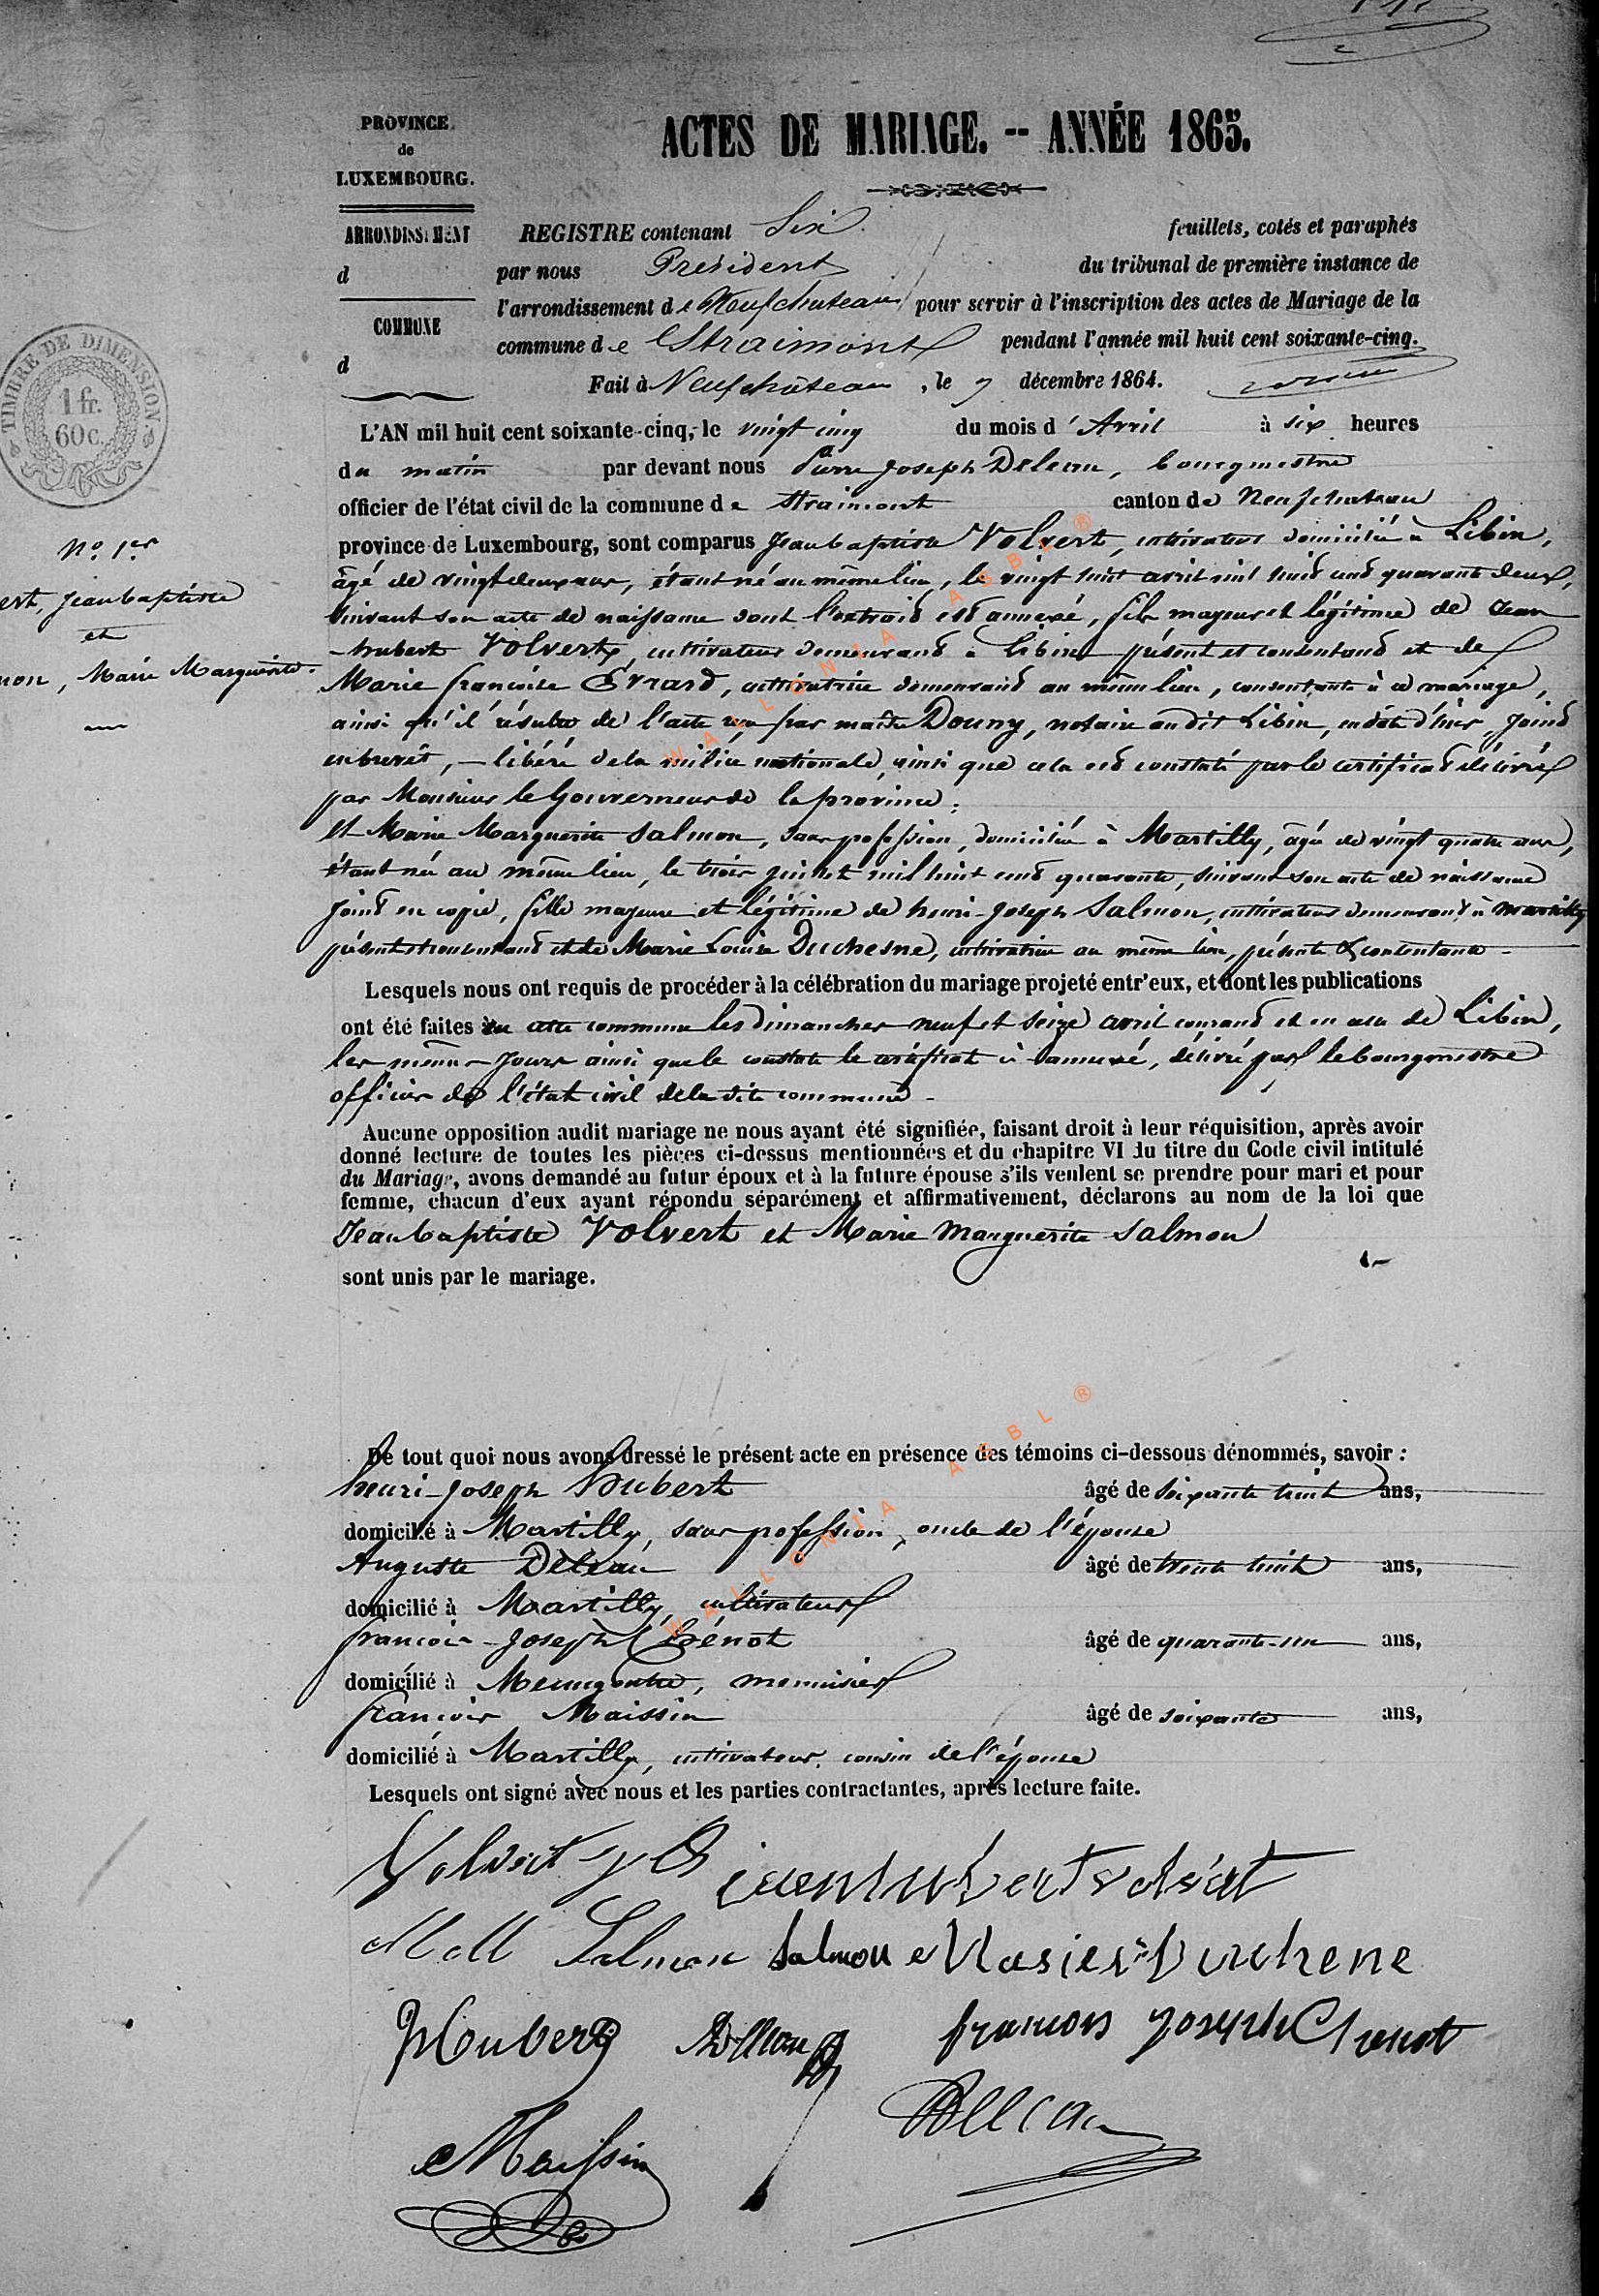 PROVINCE
de
LUXEMBOURG.
ACTES DE MARIAGE. -- ANNÉE 1865.
ARRONDISSEMENT
d
COMMUNE
d
REGISTRE contenant Six feuillets, cotés et paraphés
par nous Président du tribunal de première instance de
l'arrondissement de Neufchateau pour servir à l'inscription des actes de Mariage de la
commune de Straimont pendant l'année mil huit cent soixante-cinq.
Fait à Neufchâteau, le 7 décembre 1864.
TIMBRE DE DIMENSION
1 fr.
60 c.
N° 1er
ert, Jean baptiste
et
mon, Marie Marguerite.
L'AN mil huit cent soixante-cinq, le vingt cinq du mois d'Avril à six heures
du matin par devant nous Pierre Joseph Deleau, bourgmestre
officier de l'état civil de la commune de Straimont canton de Neufchateau
province de Luxembourg, sont comparus Jean baptiste Volvert, cultivateur domicilié à Libin,
âgé de vingt deux ans, étant né au même lieu, le vingt huit avril mil huit cent quarante deux,
suivant son acte de naissance dont l'extrait est annexé, fils majeur et légitime de Jean
hubert Volvert, cultivateur demeurand à Libin présent et consentand et de
Marie françoise Evrard, cultivatrice demeurand au même lieu, consentante à ce mariage,
ainsi qu'il résulte de l'acte reçu par maître Douny, notaire au dit Libin, en date d'hier, joind
en brevêt, – libéré de la milice nationale, ainsi que cela est constaté par le certificat délivré
par Monsieur le Gouverneur de la province;
et Marie Marguerite Salmon, sans profession, domiciliée à Martilly, âgée de vingt quatre ans,
étant née au même lieu, le trois juillet mil huit cent quarante, suivant son acte de naissance
joind en copie, fille majeure et légitime de henri-Joseph Salmon, cultivateur demeurant à Martilly
présent et consentand et de Marie Louise Duchesne, cultivatrice au même lieu, présente & consentante
Lesquels nous ont requis de procéder à la célébration du mariage projeté entr'eux, et dont les publications
ont été faites en cette commune les dimanches neuf et seize avril courand et en celle de Libin,
les mêmes jours ainsi que le constate le certificat ci annexé, délivré par le bourgmestre
officier de l'état civil de la dite commune
Aucune opposition audit mariage ne nous ayant été signifiée, faisant droit à leur réquisition, après avoir
donné lecture de toutes les pièces ci-dessus mentionnées et du chapitre VI du titre du Code civil intitulé
du Mariage, avons demandé au futur époux et à la future épouse s'ils veulent se prendre pour mari et pour
femme, chacun d'eux ayant répondu séparément et affirmativement, déclarons au nom de la loi que
Jean baptiste Volvert et Marie Marguerite Salmon
sont unis par le mariage.
De tout quoi nous avons dressé le présent acte en présence des témoins ci-dessous dénommés, savoir :
henri-Joseph hubert âgé de soixante huit ans,
domicilié à Martilly, sans profession, oncle de l'épouse
Auguste Deleau âgé de trente huit ans,
domicilié à Martilly, cultivateur
françois-Joseph Chénot âgé de quarante-un ans,
domicilié à menuisier
françois Maissin âgé de soixante ans,
domicilié à Martilly, cultivateur, cousin de l'épouse
Lesquels ont signé avec nous et les parties contractantes, après lecture faite.
Volvert jB jeanhubert volvert
M M Salmon Salmon Duchene
Houbert Deleau francois joseph Chenot
Deleau
Maissin
WALLONIA ASBL ®
WALLONIA ASBL ®